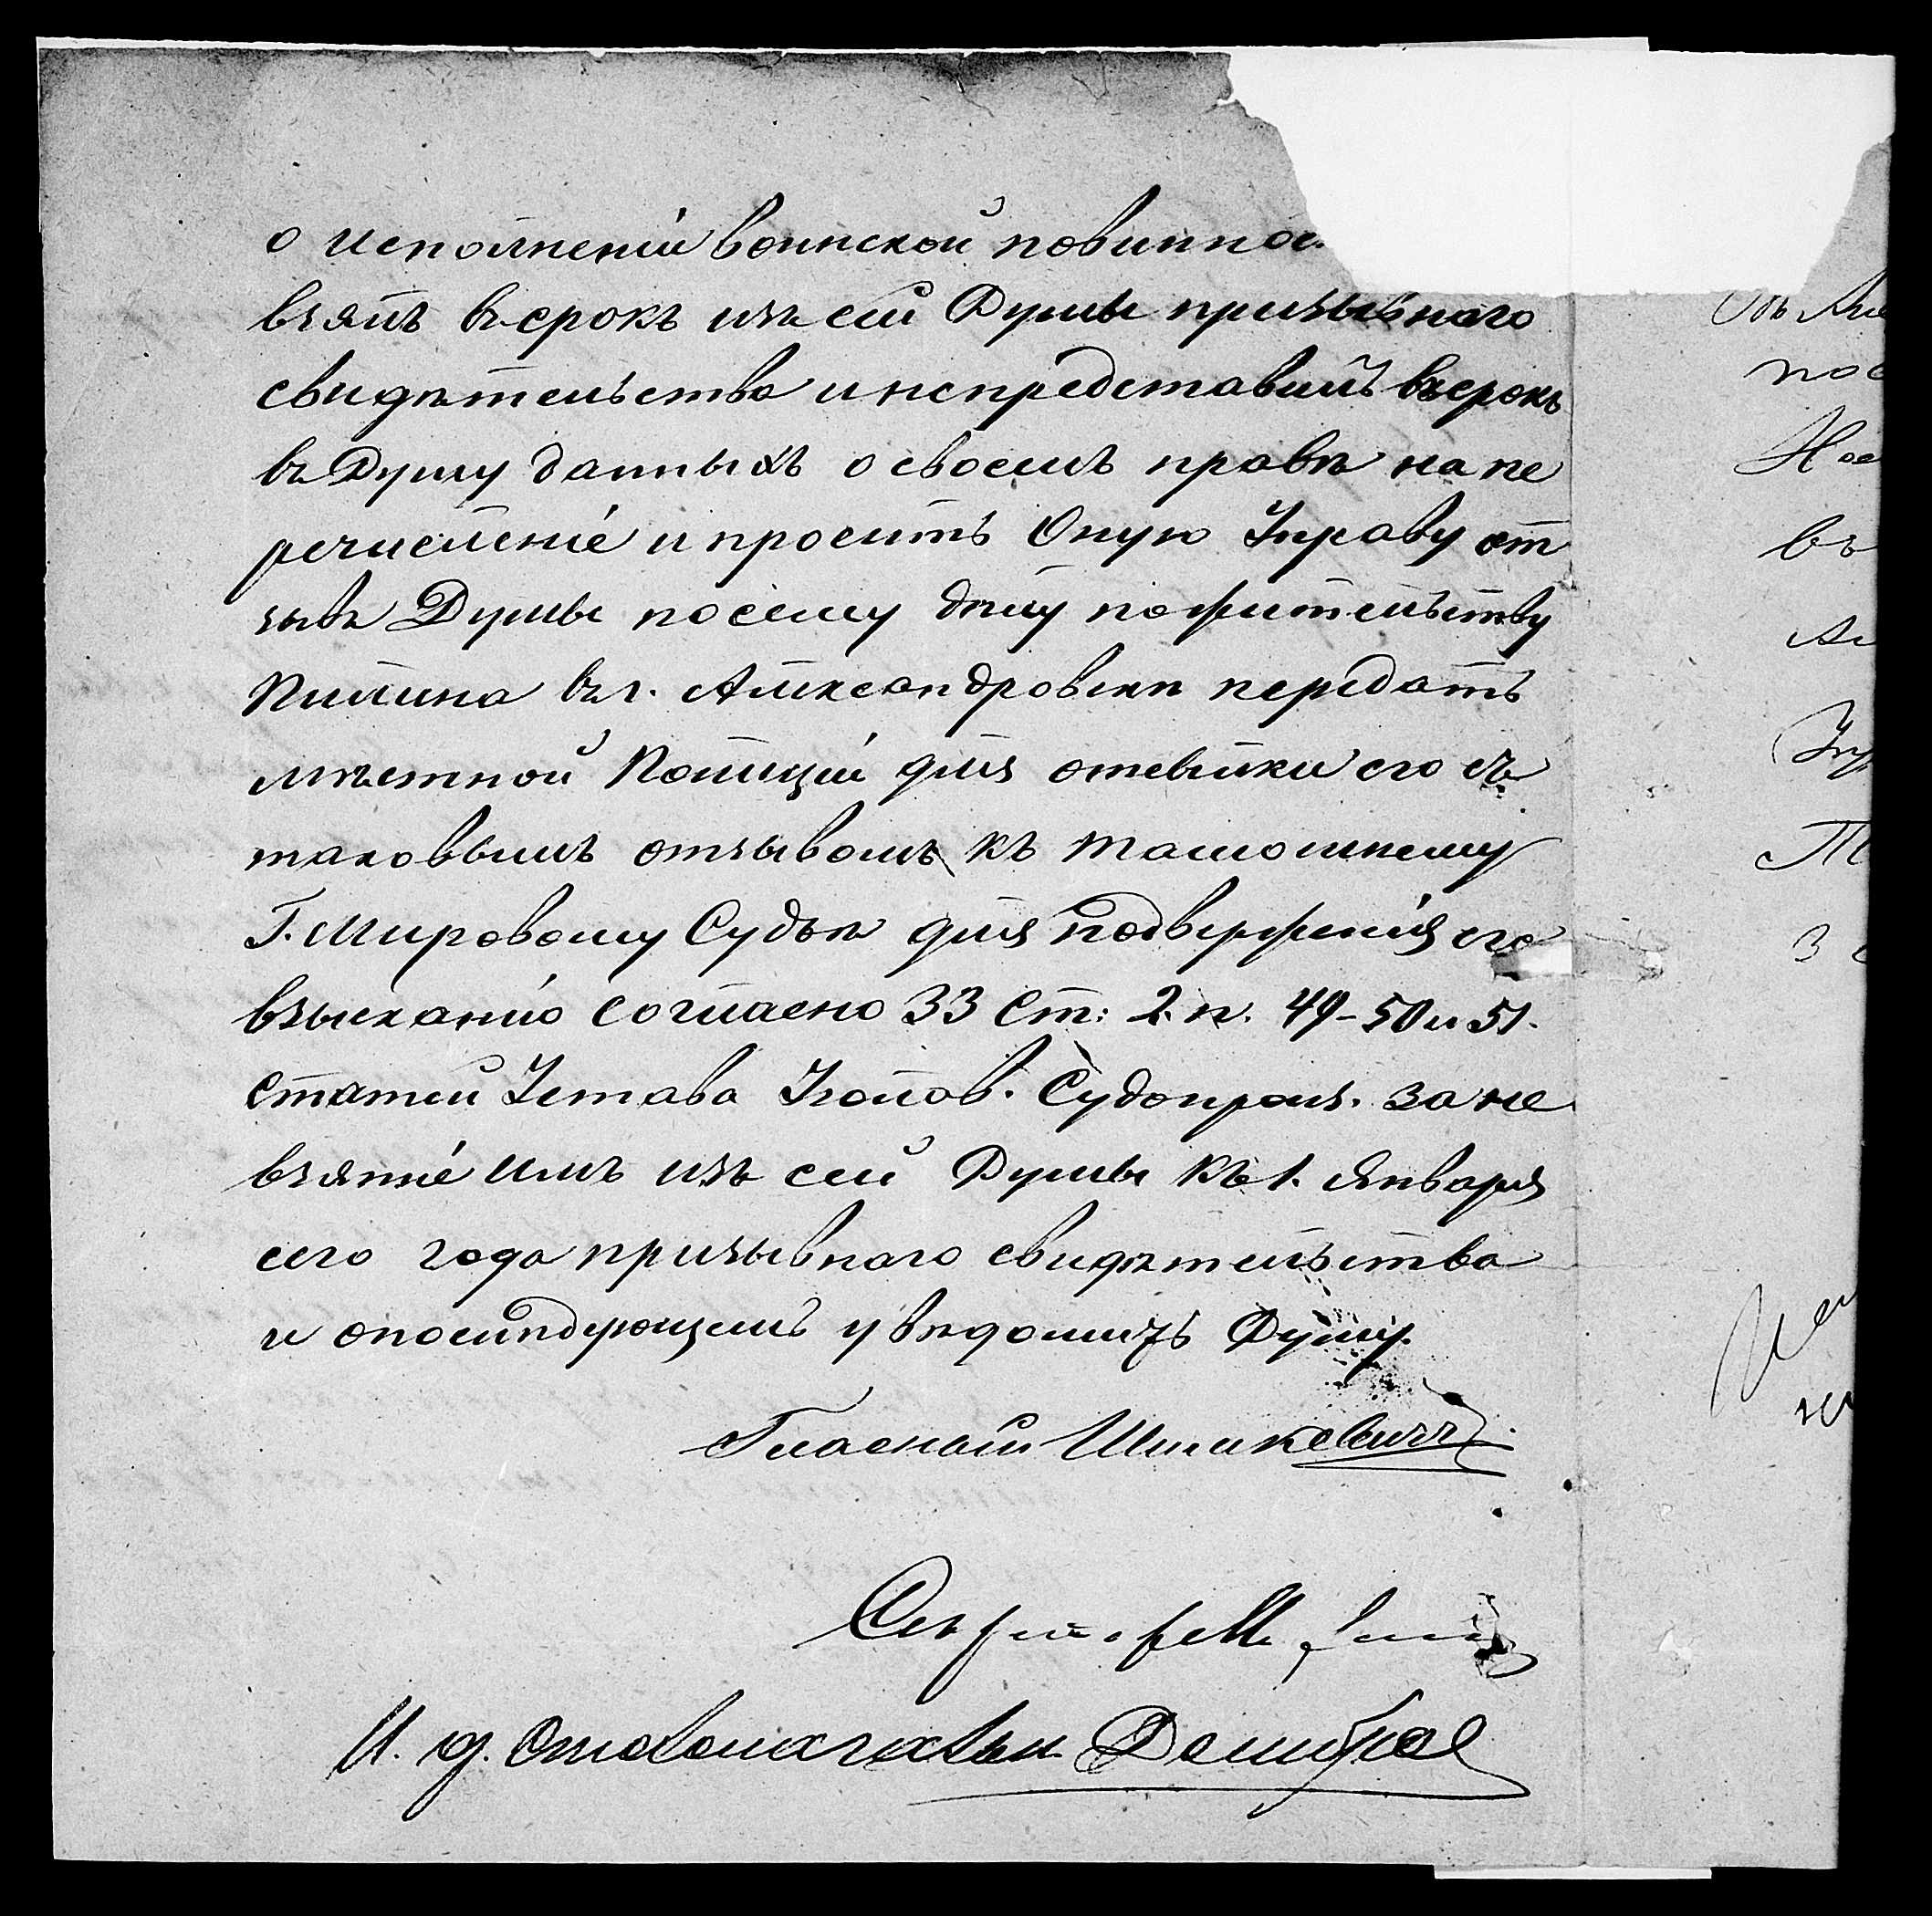 о исполненіи воинской повиннос
взятъ въ срокъ изъ сей Думы призывнаго
свидѣтельства и непредставилъ въ срокъ
въ Думу данныхъ о своемъ правѣ на пе
речисленіе и проситъ Оную Управу от
зывъ Думы по сему дѣлу по жительству
въ г. Александровскѣ передать
мѣстной Полиціи для отсылки его съ
таковымъ отзывомъ къ тамошнему
Г. Мировому Судьѣ для подверженія его
взысканію согласно 33 ст: 2. п. 49-50 и 51.
статей Устава Уголов. Судопроиз. за не
взятіе имъ изъ сей Думы къ 1. Января
сего года призывнаго свидѣтельства
и опослѣдующемъ увѣдомить Думу.
Гласный
И. д.
Въ